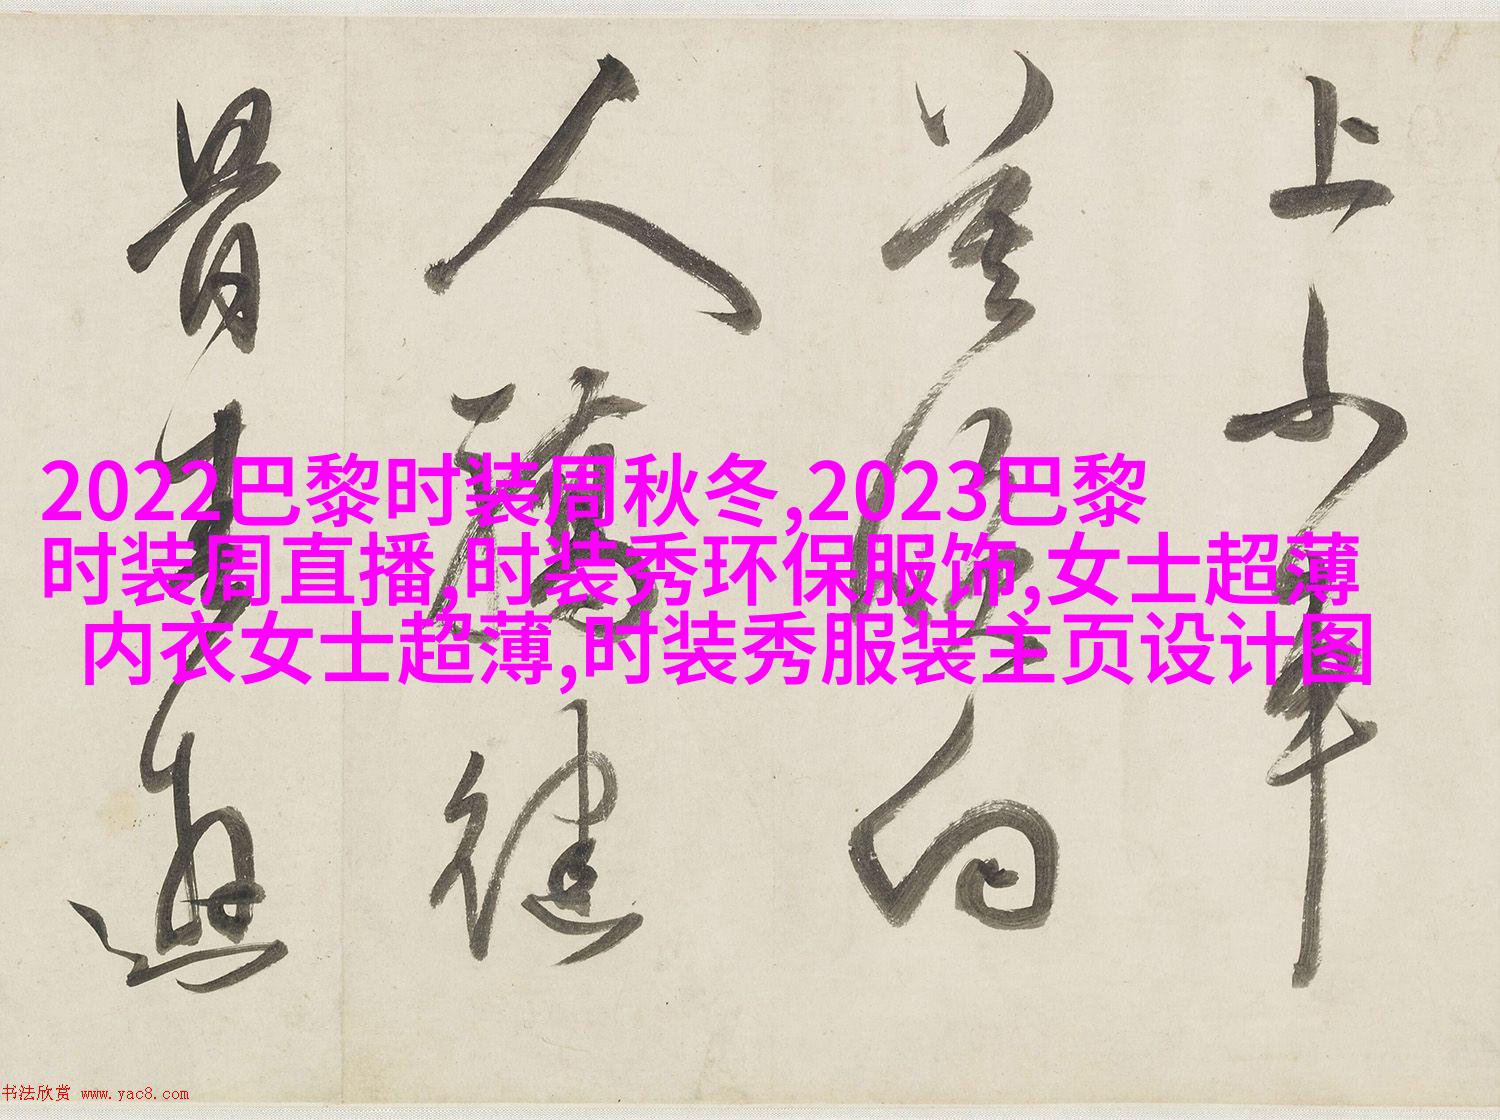 上少年
莫向
人健
2022巴黎时装周秋冬,2023巴黎
时装周直播,时装秀环保服饰,女士超薄
内衣女士超薄,时装秀服装主页设计图
书法欣赏 www.yac8.com